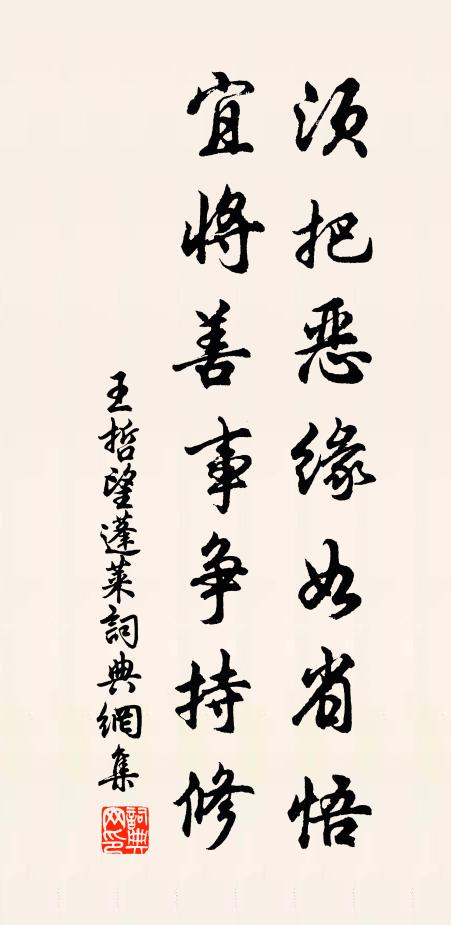 须把恶缘如省悟
宜將善事争持修
王哲望蓬莱詞典網集
詞典网印